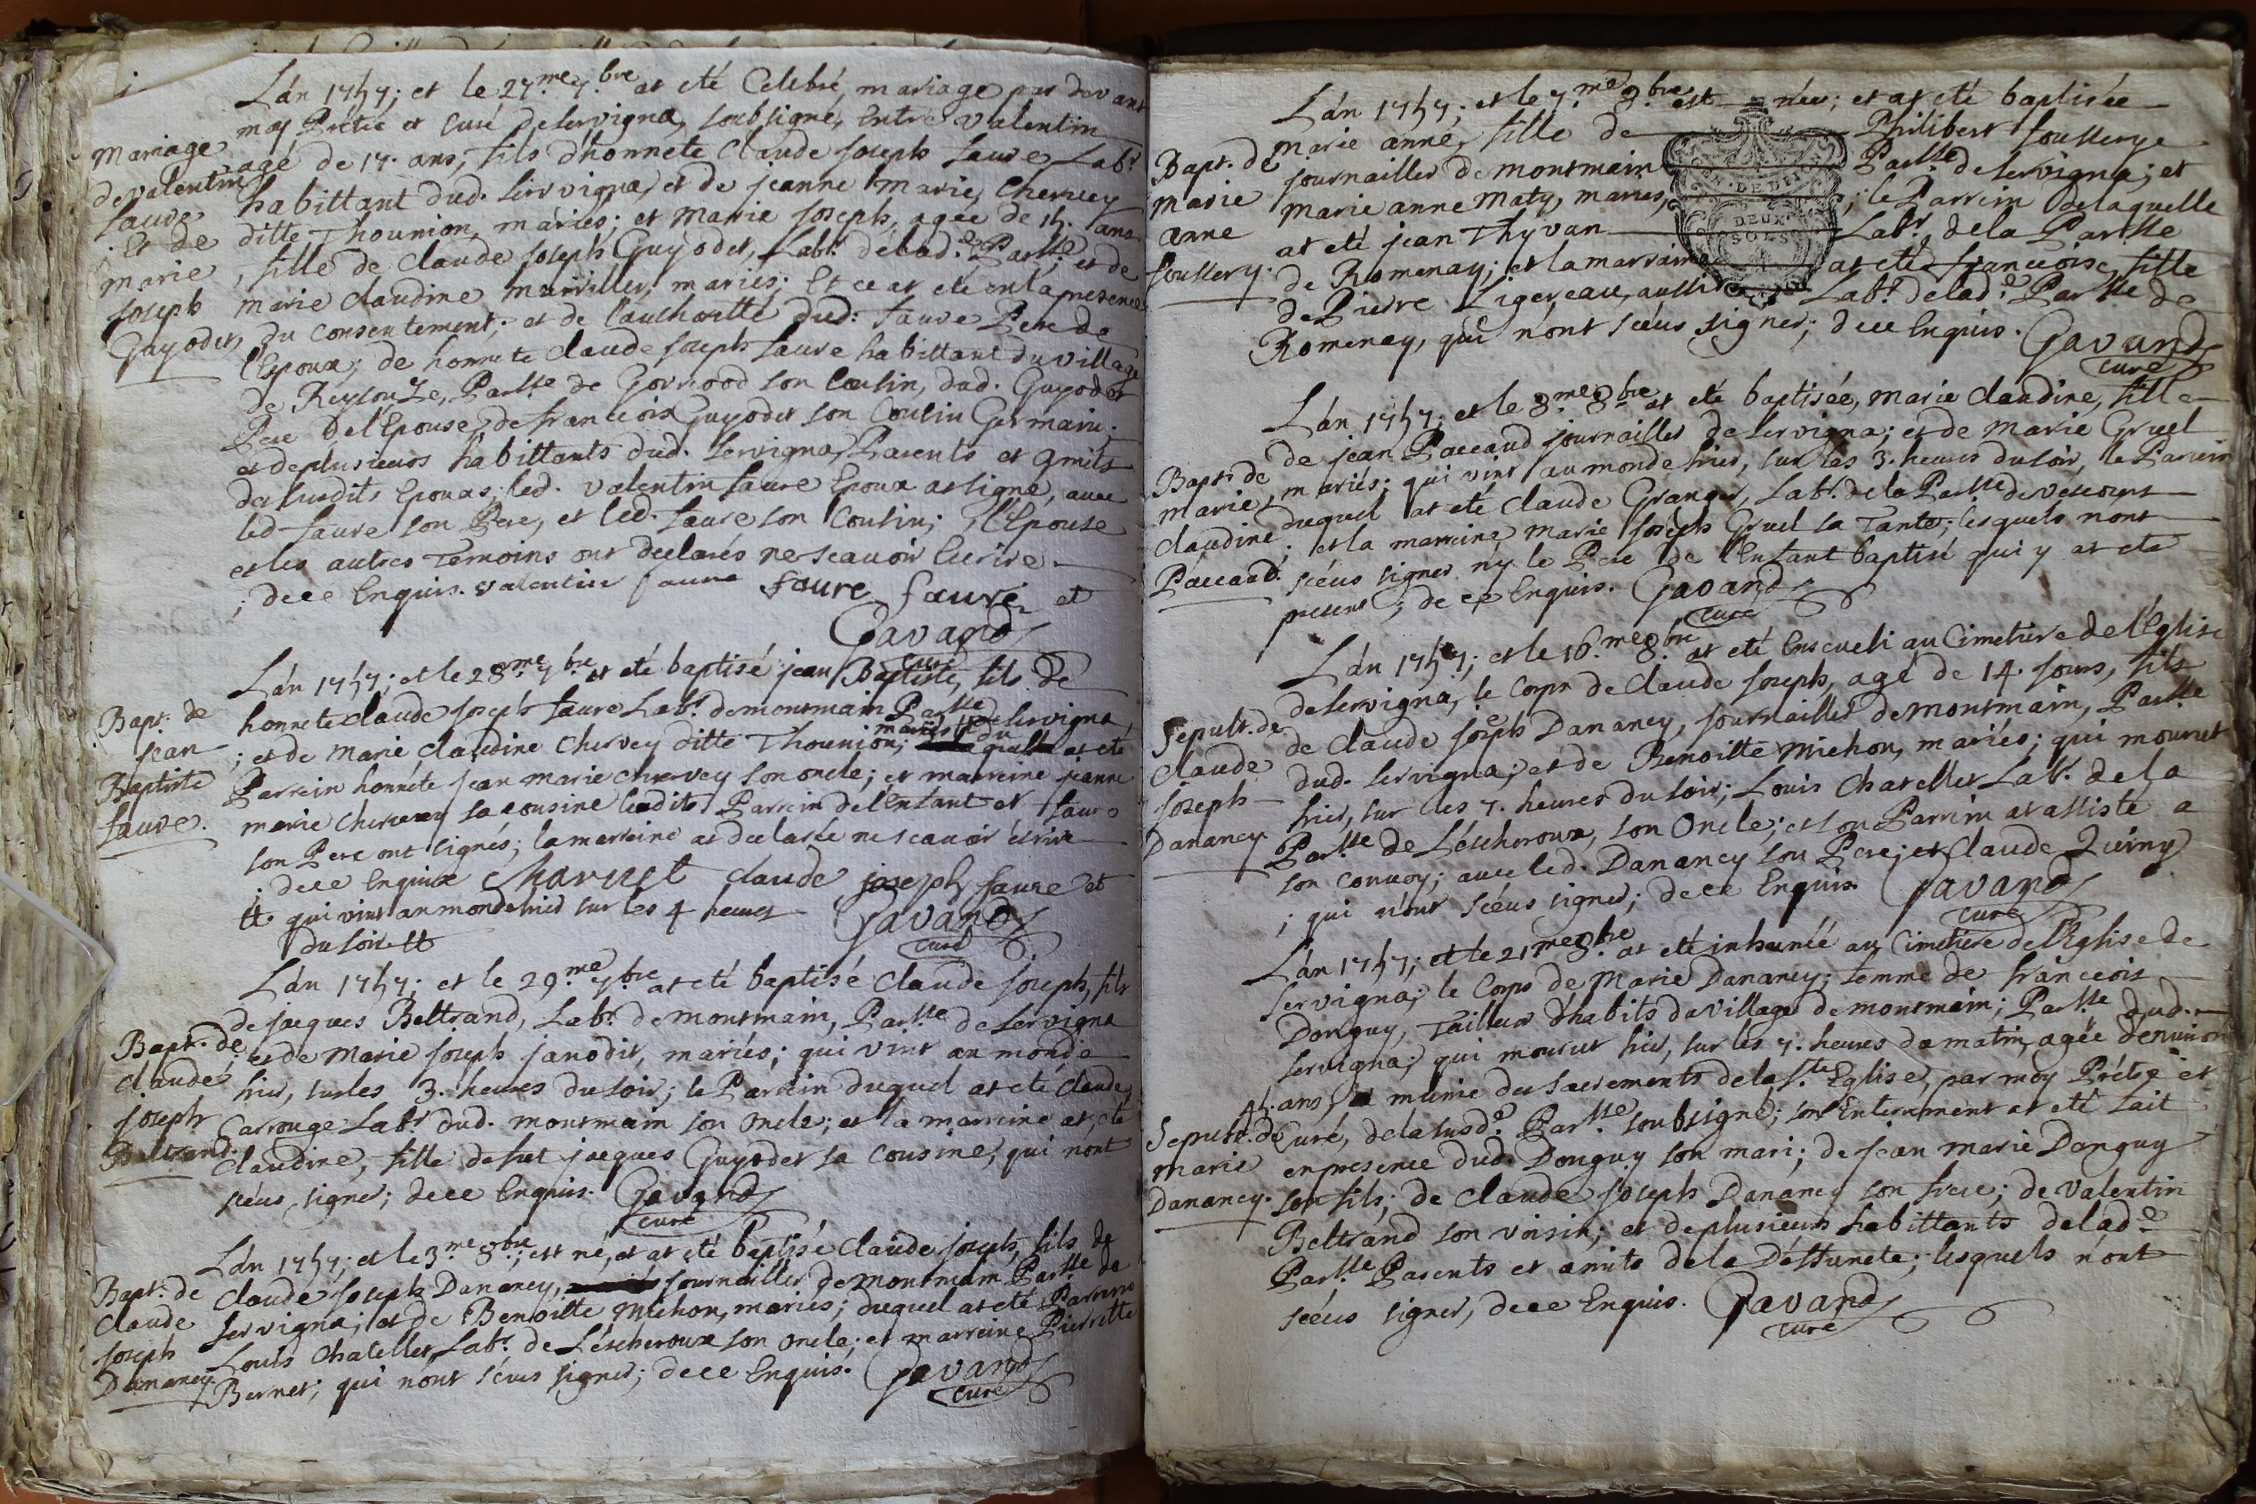 L'an 1757; et le 27.me 7.bre at eté Celebré, mariage par devant
moy Prêtre et Curé de Servigna, soubsigné, Entre Valentin
agé de 17. ans, fils d'honnete Claude Joseph faure Lab.r
habittant dud. Servigna, et de jeanne Marie Chervey
ditte Thounion, mariés; et Marie Joseph, agée de 15. ans
, fille de Claude Joseph Guyodet, Lab.r de lad.e Par.sse et de
Marie Claudine Marviller, mariés; Et ce at eté en la presence
du Consentement; et de l'authoritté dud: faure Pere de
l'Epoux; de honnete Claude Joseph faure habittant du village
de Reysouze, Par.sse de Gorvood son Cousin, dud. Guyodet
Pere de l'Epouse, de francois Guyodet son Cousin Germain.
et de plusieurs habittants dud. Servigna, Parents et amits
des susdits Epouxs; led. Valentin faure Epoux at signé, avec
led. faure son Pere, et led. faure son Cousin; l'Epouse
et les autres Temoins ont declarés ne sçavoir Ecrire
; de ce Enquis. valentin faure faure faure et
Gavand
curé
Mariage
de Valentin
faure
; Et de
Marie
Joseph
Guyodet
L'an 1757; et le 28.me 7.bre at eté baptisé jean Baptiste, fils de
honnete Claude Joseph faure Lab.r de montmain Par.sse de Servigna
; et de Marie Claudine Chervey ditte Thounion; mariés tt du at eté
Parrein honnête jean marie chervey son oncle; et marreine jeanne
marie chervey sa cousine lesdits Parrein de l'enfant et faure
son Pere ont signés; la marreine at declarée ne scavoir écrire
; de ce Enquise Charvet claude joseph faure et
tt. qui vint au monde hier sur les 4 heures Gavand
du soir tt curé
Bapt. de
jean
Baptiste
faure.
L'an 1757; et le 29.me 7.bre at eté baptisé Claude Joseph, fils
de jacques Beltrand, Lab.r de montmain, Par.sse de Servigna
; et de Marie Joseph janodit, mariés; qui vint au monde
hier, sur les 3. heures du soir; le Parrein duquel at eté Claude
Carrouge Lab.r dud. montmain son Oncle; et la marreine at eté
Claudine, fille de fut jacques Guyodet sa cousine, qui n'ont
scéus signer; de ce Enquis. Gavand
curé
Bapt. de
claude
Joseph
Beltrand.
L'an 1757; et le 3.me 8.bre; est né, et at eté baptisé Claude joseph, fils de
Claude Joseph Dananey, journaillier de montmain Par.sse de
Servigna; et de Benoitte Michon, mariés; duquel at eté Parrein
Louis Chateller, Lab.r de Léscheroux son oncle; et marreine Pierrette
Bernet; qui nont scéus signer; de ce Enquis. Gavand
curé
Bapt. de
Claude
Joseph
Dananey
L'an 1757; et le 7.me 8.bre est née; et at eté baptisée
Marie anne, fille de Philibert foullerye
journailler de montmain Par.sse de Servigna; et
Marie anne Maty, mariés, ; le Parrein de laquelle
at eté jean Thyvan Lab.r de la Par.sse
de Romenay; et la marraine at eté francoise, fille
de Pierre Ligereau, aussi Lab.r de lad.e Par.sse de
Romenay, qui n'ont scéus signer; de ce Enquis. Gavand
curé
DEUX
SOLS
Bapt. de
Marie
anne
foullery.
L'an 1757; et le 8.me 8.bre at eté baptisée, Marie Claudine, fille
de jean Paccaud journailler de Servigna; et de Marie Gruel
, mariés; qui vint au monde hier, sur les 3. heures du soir, le Parrein
duquel at eté Claude Granger, Lab.r de la Par.sse de vescours
; et la marreine Marie Joseph Gruel sa Tante; lesquels n'ont
scéus signer ny le Pere de l'Enfant baptisé qui y at eté
present; de ce Enquis. Gavand
curé
Bapt. de
marie
claudine
Paccaud.
L'an 1757; et le 16.me 8.bre at eté Enseveli au Cimetiere de l'Eglise
de Servigna, le Corps de Claude Joseph, agé de 14. jours, fils
de Claude Joseph Dananey, journailler de montmain, Par.sse
dud. Servigna; et de Benoitte Michon, mariés; qui mourut
hier, sur les 7. heures du soir; Louis Chateller Lab.r de la
Par.sse de Léscheroux, son Oncle; et son Parrein at assisté a
son convoy; avec led. Dananey son Pere; et Claude Quirny
; qui n'ont scéus signer; de ce Enquis. Gavand
curé
Sepult. de
Claude
Joseph
Dananey.
L'an 1757; et le 21.me 8.bre at eté inhumée au Cimetiere de l'Eglise de
Servigna; le Corps de Marie Dananey; femme de francois
Donguy, Tailleur d'habits du village de montmain; Par.sse dud.
Servigna; qui mourut hier, sur les 7. heures du matin, agée d'environ
ans, munie des Sacrements de la S.te Eglise, par moy Prêtre et
Curé, de la susd.e Par.sse soubsigné; son Enterrement at eté fait
en presence dud. Donguy son mari; de jean Marie Donguy
son fils; de Claude Joseph Dananey son frere; de Valentin
Beltrand son voisin; et de plusieurs habittants de lad.e
Par.sse Parents et amits de la Deffunete; lesquels n'ont
scéus signer, de ce Enquis. Gavand
curé
Sepult. de
marie
Dananey.